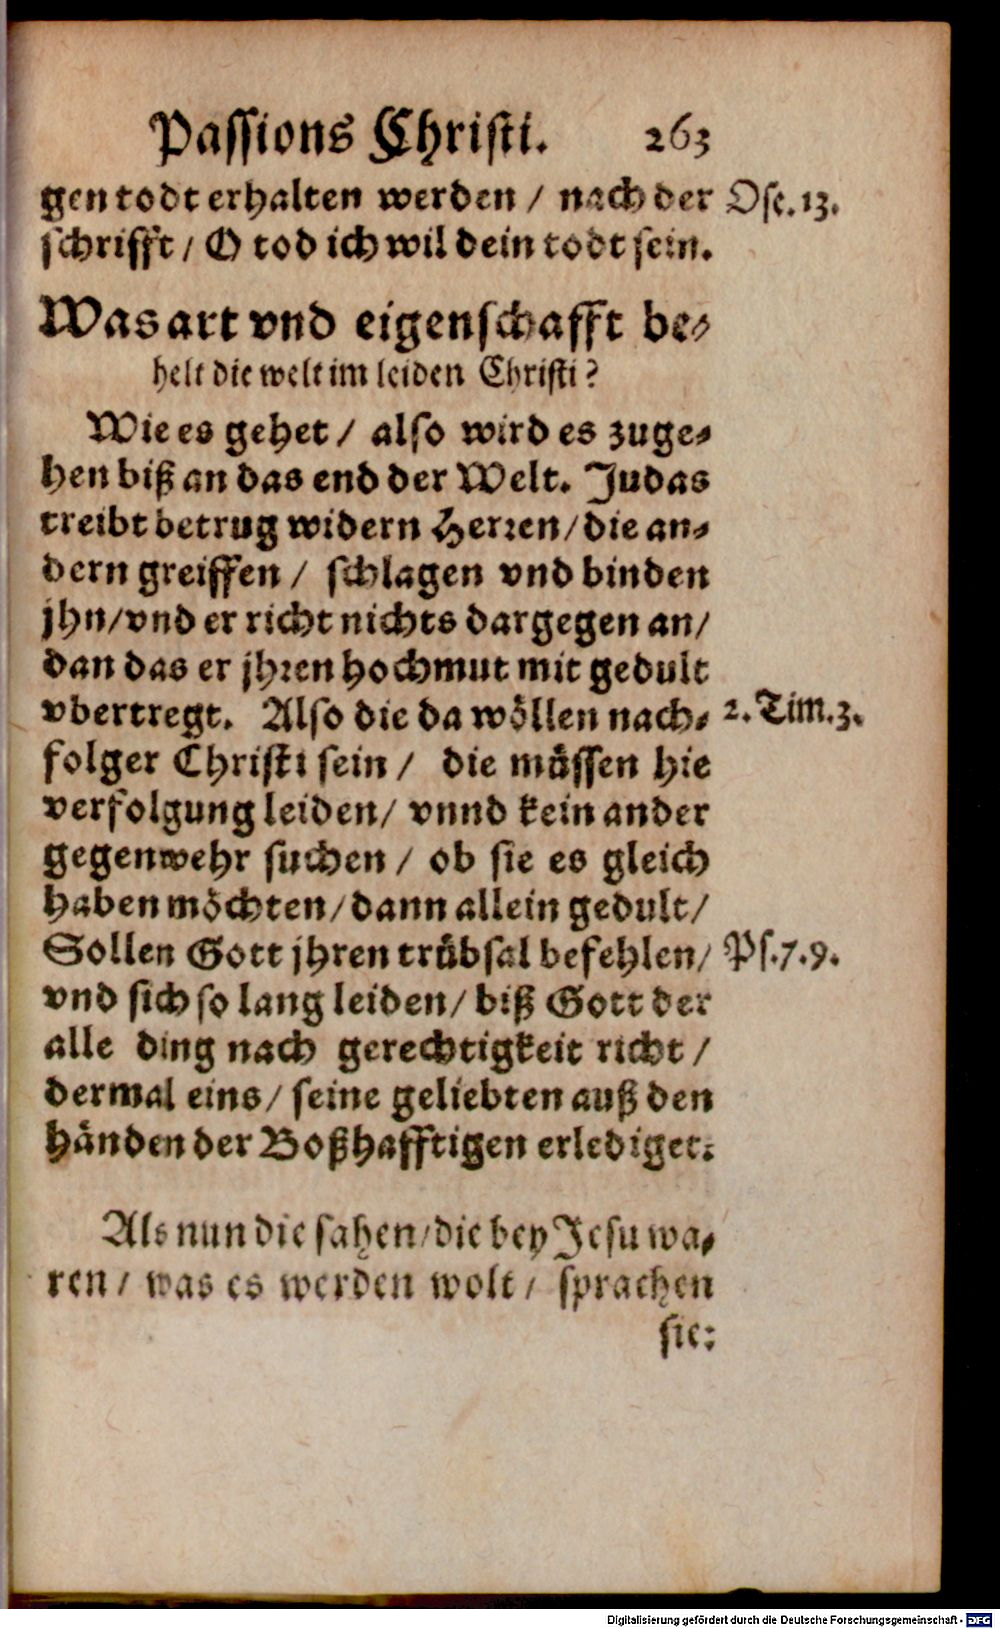 Passions Christi. 263
gen todt erhalten werden / nach der Ose. 13.
schrifft / O tod ich wil dein todt sein.
Was art vnd eigenschafft be-
helt die welt im leiden Christi?
Wie es gehet / also wird es zuge-
hen biß an das end der Welt. Judas
treibt betrug widern Herren / die an-
dern greiffen / schlagen vnd binden
jhn / vnd er richt nichts dargegen an /
dan das er jhren hochmut mit gedult
vbertregt. Also die da wöllen nach- 2. Tim. 3.
folger Christi sein / die müssen hie
verfolgung leiden / vnnd kein ander
gegenwehr suchen / ob sie es gleich
haben möchten / dann allein gedult /
Sollen Gott jhren trübsal befehlen / Ps. 7. 9.
vnd sich so lang leiden / biß Gott der
alle ding nach gerechtigkeit richt /
dermal eins / seine geliebten auß den
händen der Boßhafftigen erlediget.
Als nun die sahen / die bey Jesu wa-
ren / was es werden wolt / sprachen
sie:
Digitalisierung gefördert durch die Deutsche Forschungsgemeinschaft - DFG